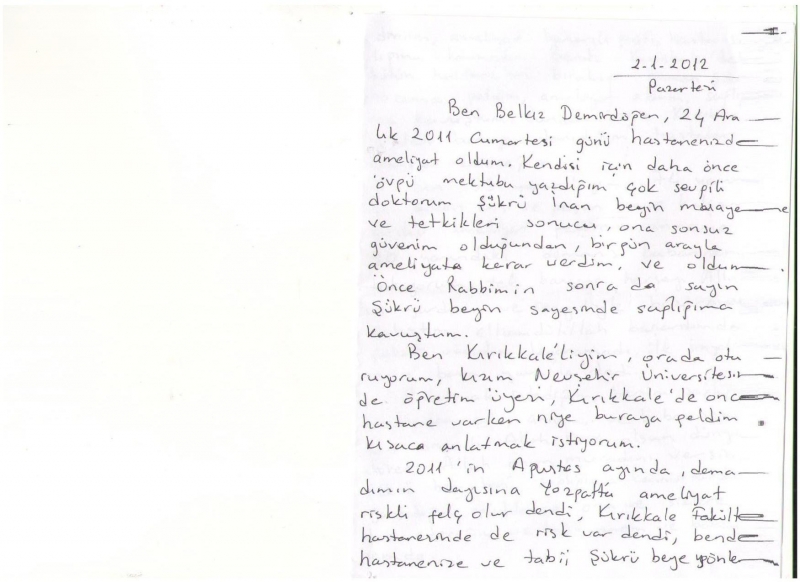 2-1-2012
Pazartesi
Ben Belkız Demirdöğen, 24 Ara
lık 2011 Cumartesi günü hastanenizde
ameliyat oldum. Kendisi için daha önce
övgü mektubu yazdığım çok sevgili
doktorum Şükrü İnan beyin muaye
ve tetkikleri sonucu, ona sonsuz
güvenim olduğundan, birgün arayla
ameliyata karar verdim, ve oldum.
Önce Rabbimin sonra da sayın
Şükrü beyin sayesinde sağlığıma
kavuştum.
Ben Kırıkkale'liyim, orada otu
ruyorum, kızım Nevşehir Üniversitesin
de öğretim üyesi, Kırıkkale'de onca
hastane varken niye buraya geldim
kısaca anlatmak istiyorum.
2011'in Agustos ayında, dama
dımın dayısına Yozgatta ameliyat
riskli felç olur dendi, Kırıkkale Fakülte
hastanesinde de risk var dendi, bende
hastanenize ve tabii Şükrü beye yönle